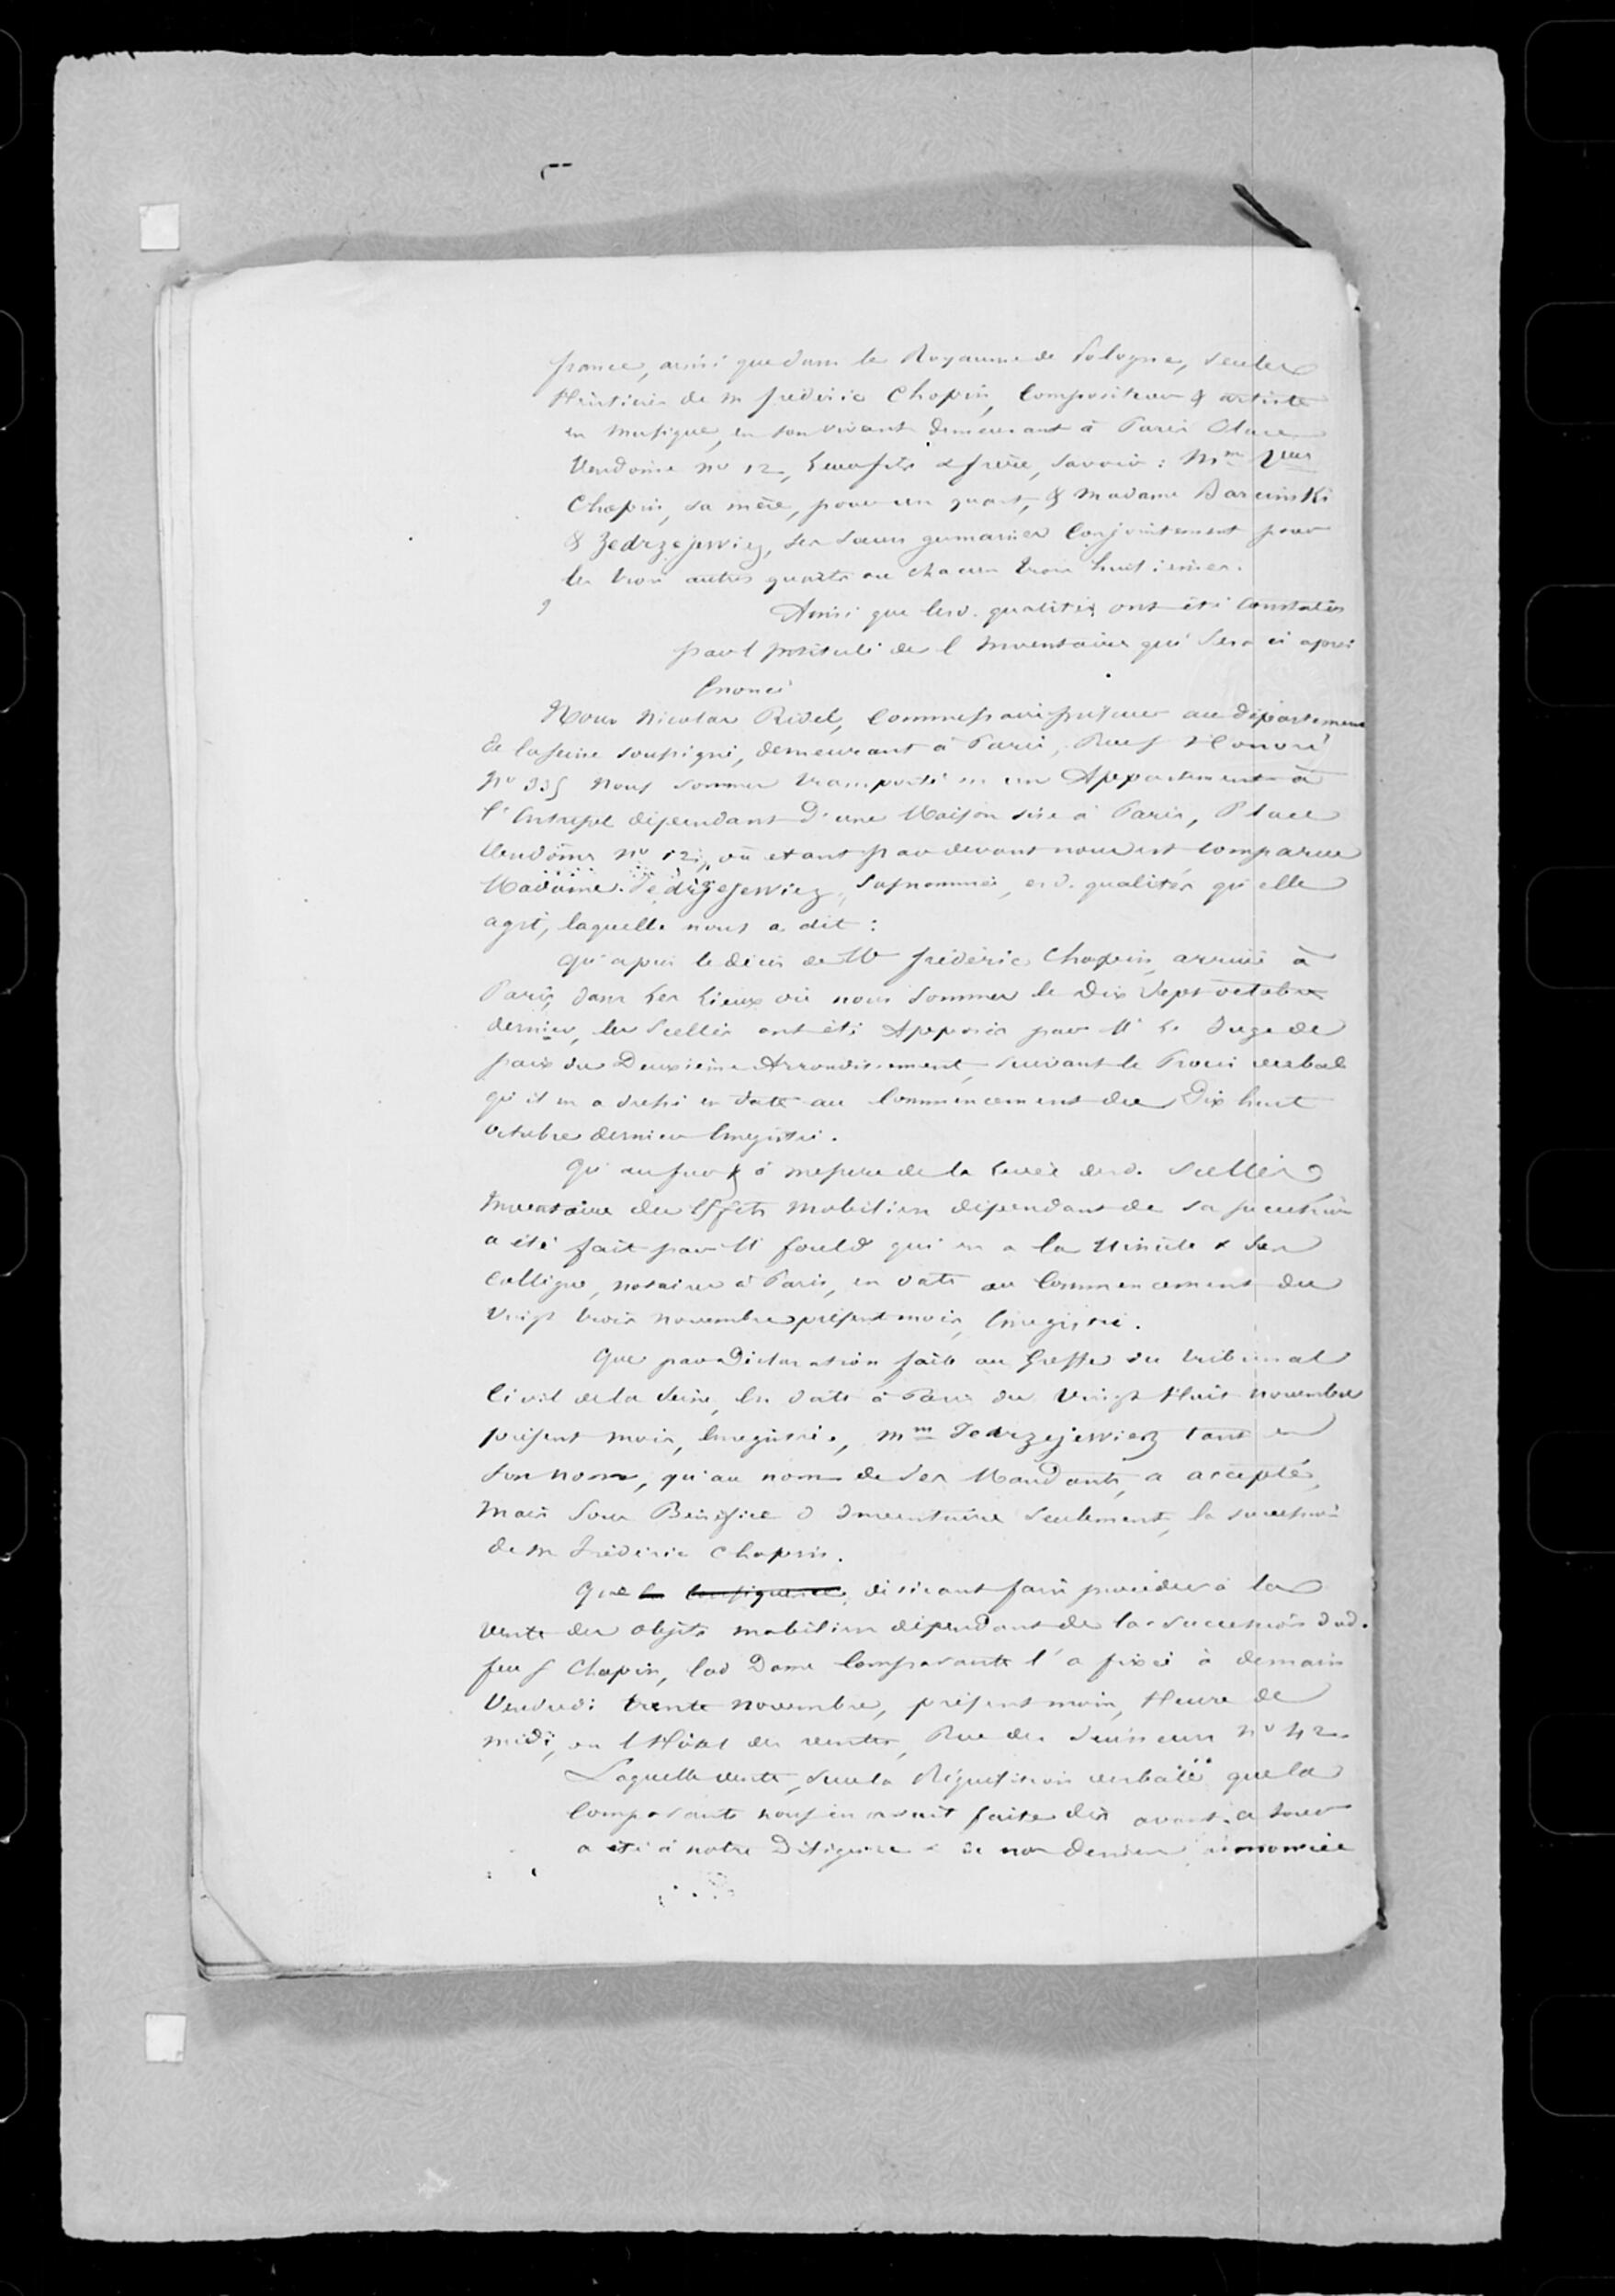 france, ainsi que dans le Royaume de Pologne, seules
Héritières de M frédéric Chopin, Compositeur & artiste
en Musique, en son vivant demeurant à Paris Place
Vendôme no 12, leur fils & frère, savoir : Mme Vve
Chopin, sa mère, pour un quart, & Madame Barcinski
& Jedrzejewicz, ses sœurs germaines Conjointement pour
les trois autres quarts ou chacune trois huitièmes.
Ainsi que lesd. qualités ont été Constatées
par l'intitulé de l Inventaire qui sera ci après
Enoncé
Nous Nicolas Ridel, Commissaire priseur au département
de la Seine soussigné, demeurant à Paris, Rue St Honoré
No 335 Nous sommes transporté en un Appartement à
l'Entresol dépendant d'une Maison sise à Paris, Place
Vendôme no 12, où étant par devant nous est comparue
Madame Jedrzejewicz, susnommée, esd. qualités qu'elle
agit, laquelle nous a dit :
qu'après le décès de Mr frédéric Chopin, arrivé à
Paris, dans les Lieux où nous sommes le Dix Sept octobre
dernier, les Scellés ont été Apposés par Mr le Juge de
paix du Deuxième Arrondissement, suivant le Procès verbal
qu'il en a dressé en date au Commencement du Dix huit
octobre dernier Enregistré.
Qu'au fur & à mesure de la levée desd. Scellés
Inventaire des Effets Mobiliers dépendant de sa succession
a été fait par Me Fould qui en a la Minute & son
Collègue, notaires à Paris, en date au Commencement du
Vingt trois novembre présent mois, Enregistré.
Que par Déclaration faite au Greffe du tribunal
Civil de la Seine, en date à Paris du Vingt Huit novembre
présent mois, Enregistrée, Mme Jedrzejewicz tant en
son nom, qu'au nom de ses Mandants, a accepté,
Mais Sous Bénéfice d Inventaire Seulement, la succession
de M Frédéric Chopin.
Que en Conséquence, désirant faire procéder à la
Vente des objets mobiliers dépendant de la succession dud.
feu S Chopin, lad Dame Comparante l'a fixée à demain
Vendredi trente novembre, présent mois, Heure de
midi, en l Hôtel des ventes, Rue des Jeuneurs No 42.
Laquelle vente, sur la Réquisition verbale que la
Comparante nous en avait faite dès avant ce jour
a été à notre Diligence & de nos deniers annoncée